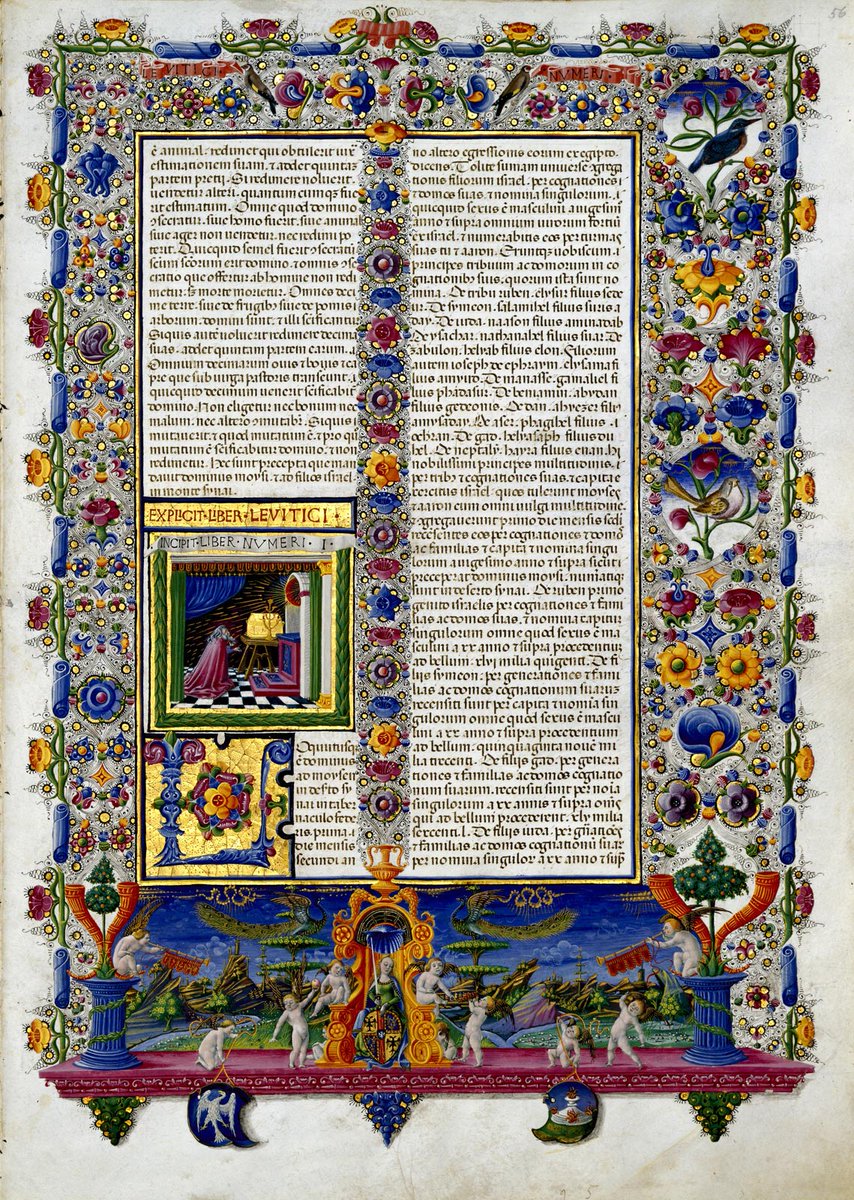 56
LEVITICI
NUMERI
ē animal. redimet qui obtulerit iux
estimationem suam. & adet quintaz
partem pretii. Si redimere noluerit.
uendetur alteri. quantum cumq; fue
rit estimatum. Omne quod domino
ɔsecratur. siue homo fuerit. siue animal
siue ager non uendetur. nec redimi po
terit. Quicquid semel fuerit ɔsecratū
scūm scōrum erit domino. & omnis ɔse
cratio que offertur ab homine non redi
metur. s; morte morietur. Omnes deci
me terre. siue de frugib; siue de pomis
arborum. domini sunt. & illi scificantur
Siquis autē uoluerit redimere decimas
suas. adet quintam partem earum.
Omnium decimarum ouis & bouis & ca
pre que sub uirga pastoris transeunt.
quicquid decimum uenerit scificabitur
domino. Non eligetur nec bonum nec
malum. nec altero ɔmutabit. Siquis
mutauerit. & quod mutatum ē & pro quo
mutatum ē scificabitur domino. & non
redimetur. Hec sunt precepta que man
dauit dominus moysi. & ad filios israel
in monte synai.
EXPLICIT · LIBER · LEVITICI ·
INCIPIT · LIBER · NVMERI · I
L
Oqutusq;
ē dominus
ad moysen
in desto sy
nai in taber
naculo fede
ris. prima
die mensis
secundi. an
no altero egressionis eorum ex egipto.
dicens. Tolite sumam uniuerse ɔgrega
tionis filiorum israel. per cognationes &
domos suas. & nomina singulorum.
quicquid sexus ē masculini a uigesimo
anno & supra omnium uirorum fortiū
ex israel. & numerabitis eos per turmas
suas tu & aaron. Eruntq; uobiscum
principes tribuum ac domorum in co
gnationib; suis. quorum ista sunt no
mina. De tribu ruben. elysur filius sede
ur. De symeon. salamihel filius suris a
day. De iuda. naason filius aminadab
De ysachar. nathanahel filius suar. De
zabulon. helyab filius elon. Filiorum
autem ioseph de ephraym. elysama fi
lius amyud. De manasse. gamaliel fi
lius phadasur. De beniamin. abydan
filius gedeonis. De dan. ahyezer fili
ysaday. De aser. phagihel filius
ochran. De gad. helyasaph filius du
el. De neptaly. hayra filius enan. Hi
nobilissimi principes multitudinis.
per tribus & cognationes suas. & capita
exercitus israel. quos tulerunt moyses
& aaron cum omni uulgi multitudine.
ɔgregauerunt primo die mensis sedi
recensentes eos per cognationes & domos
ac familias & capita & nomina singu
lorum a uigesimo anno & supra sicut
preceperat dominus moysi. numeratiq;
sunt in deserto synai. De ruben primo
genito israelis per cognationes & fami
lias ac domos suas. & nomina capitum
singulorum omne quod sexus ē mas
culini a xx anno & supra procedentium
ad bellum. xlvi milia quigenti. De fi
liis symeon. per generationes & fami
lias ac domos cognationum suarum
recensiti sunt per capita & nomīa sin
gulorum omne quod sexus ē mascu
lini a xx anno & supra procedentium
ad bellum. quinquaginta nouē mi
lia trecenti. De filiis gad. per genera
tiones & familias ac domos cognatio
num suarum. recensiti sunt per noīa
singulorum a xx annis & supra om̄s
qui ad bellum procederent. xlv milia
sexcenti l. De filiis iuda. per gnatiōes
& familias ac domos cognationū suar
per nomina singulor a xx anno & sup